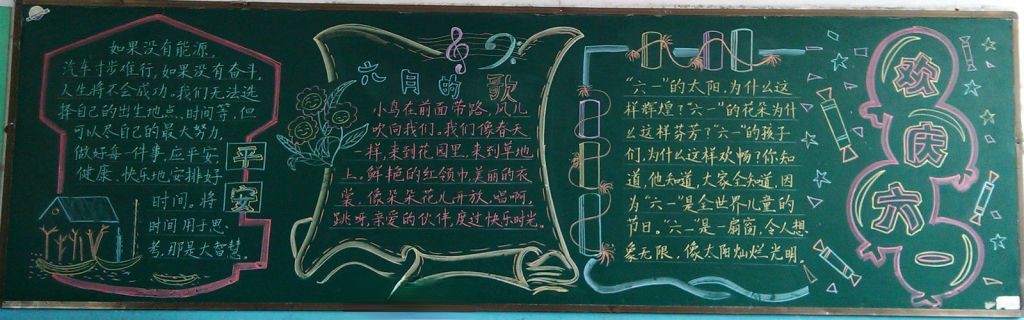 如果没有能源,
汽车寸步难行,如果没有奋斗,
人生将不会成功。我们无法选
择自己的出生地点、时间等,但
可以尽自己的最大努力,
做好每一件事,应平安、
健康、快乐地安排好
时间。将
时间用于思
考,那是大智慧。
平
安
六月的歌
小鸟在前面带路,风儿
吹向我们。我们像春天
一样,来到花园里,来到草地
上。鲜艳的红领巾,美丽的衣
裳,像朵朵花儿开放。唱啊,
跳呀,亲爱的伙伴,度过快乐时光。
“六一”的太阳,为什么这
样辉煌?“六一”的花朵为什
么这样芬芳?“六一”的孩子
们,为什么这样欢畅?你知
道,他知道,大家全知道,因
为“六一”是全世界儿童的
节日。“六一”是一扇窗,令人想
象无限,像太阳灿烂光明。
欢
庆
六
一